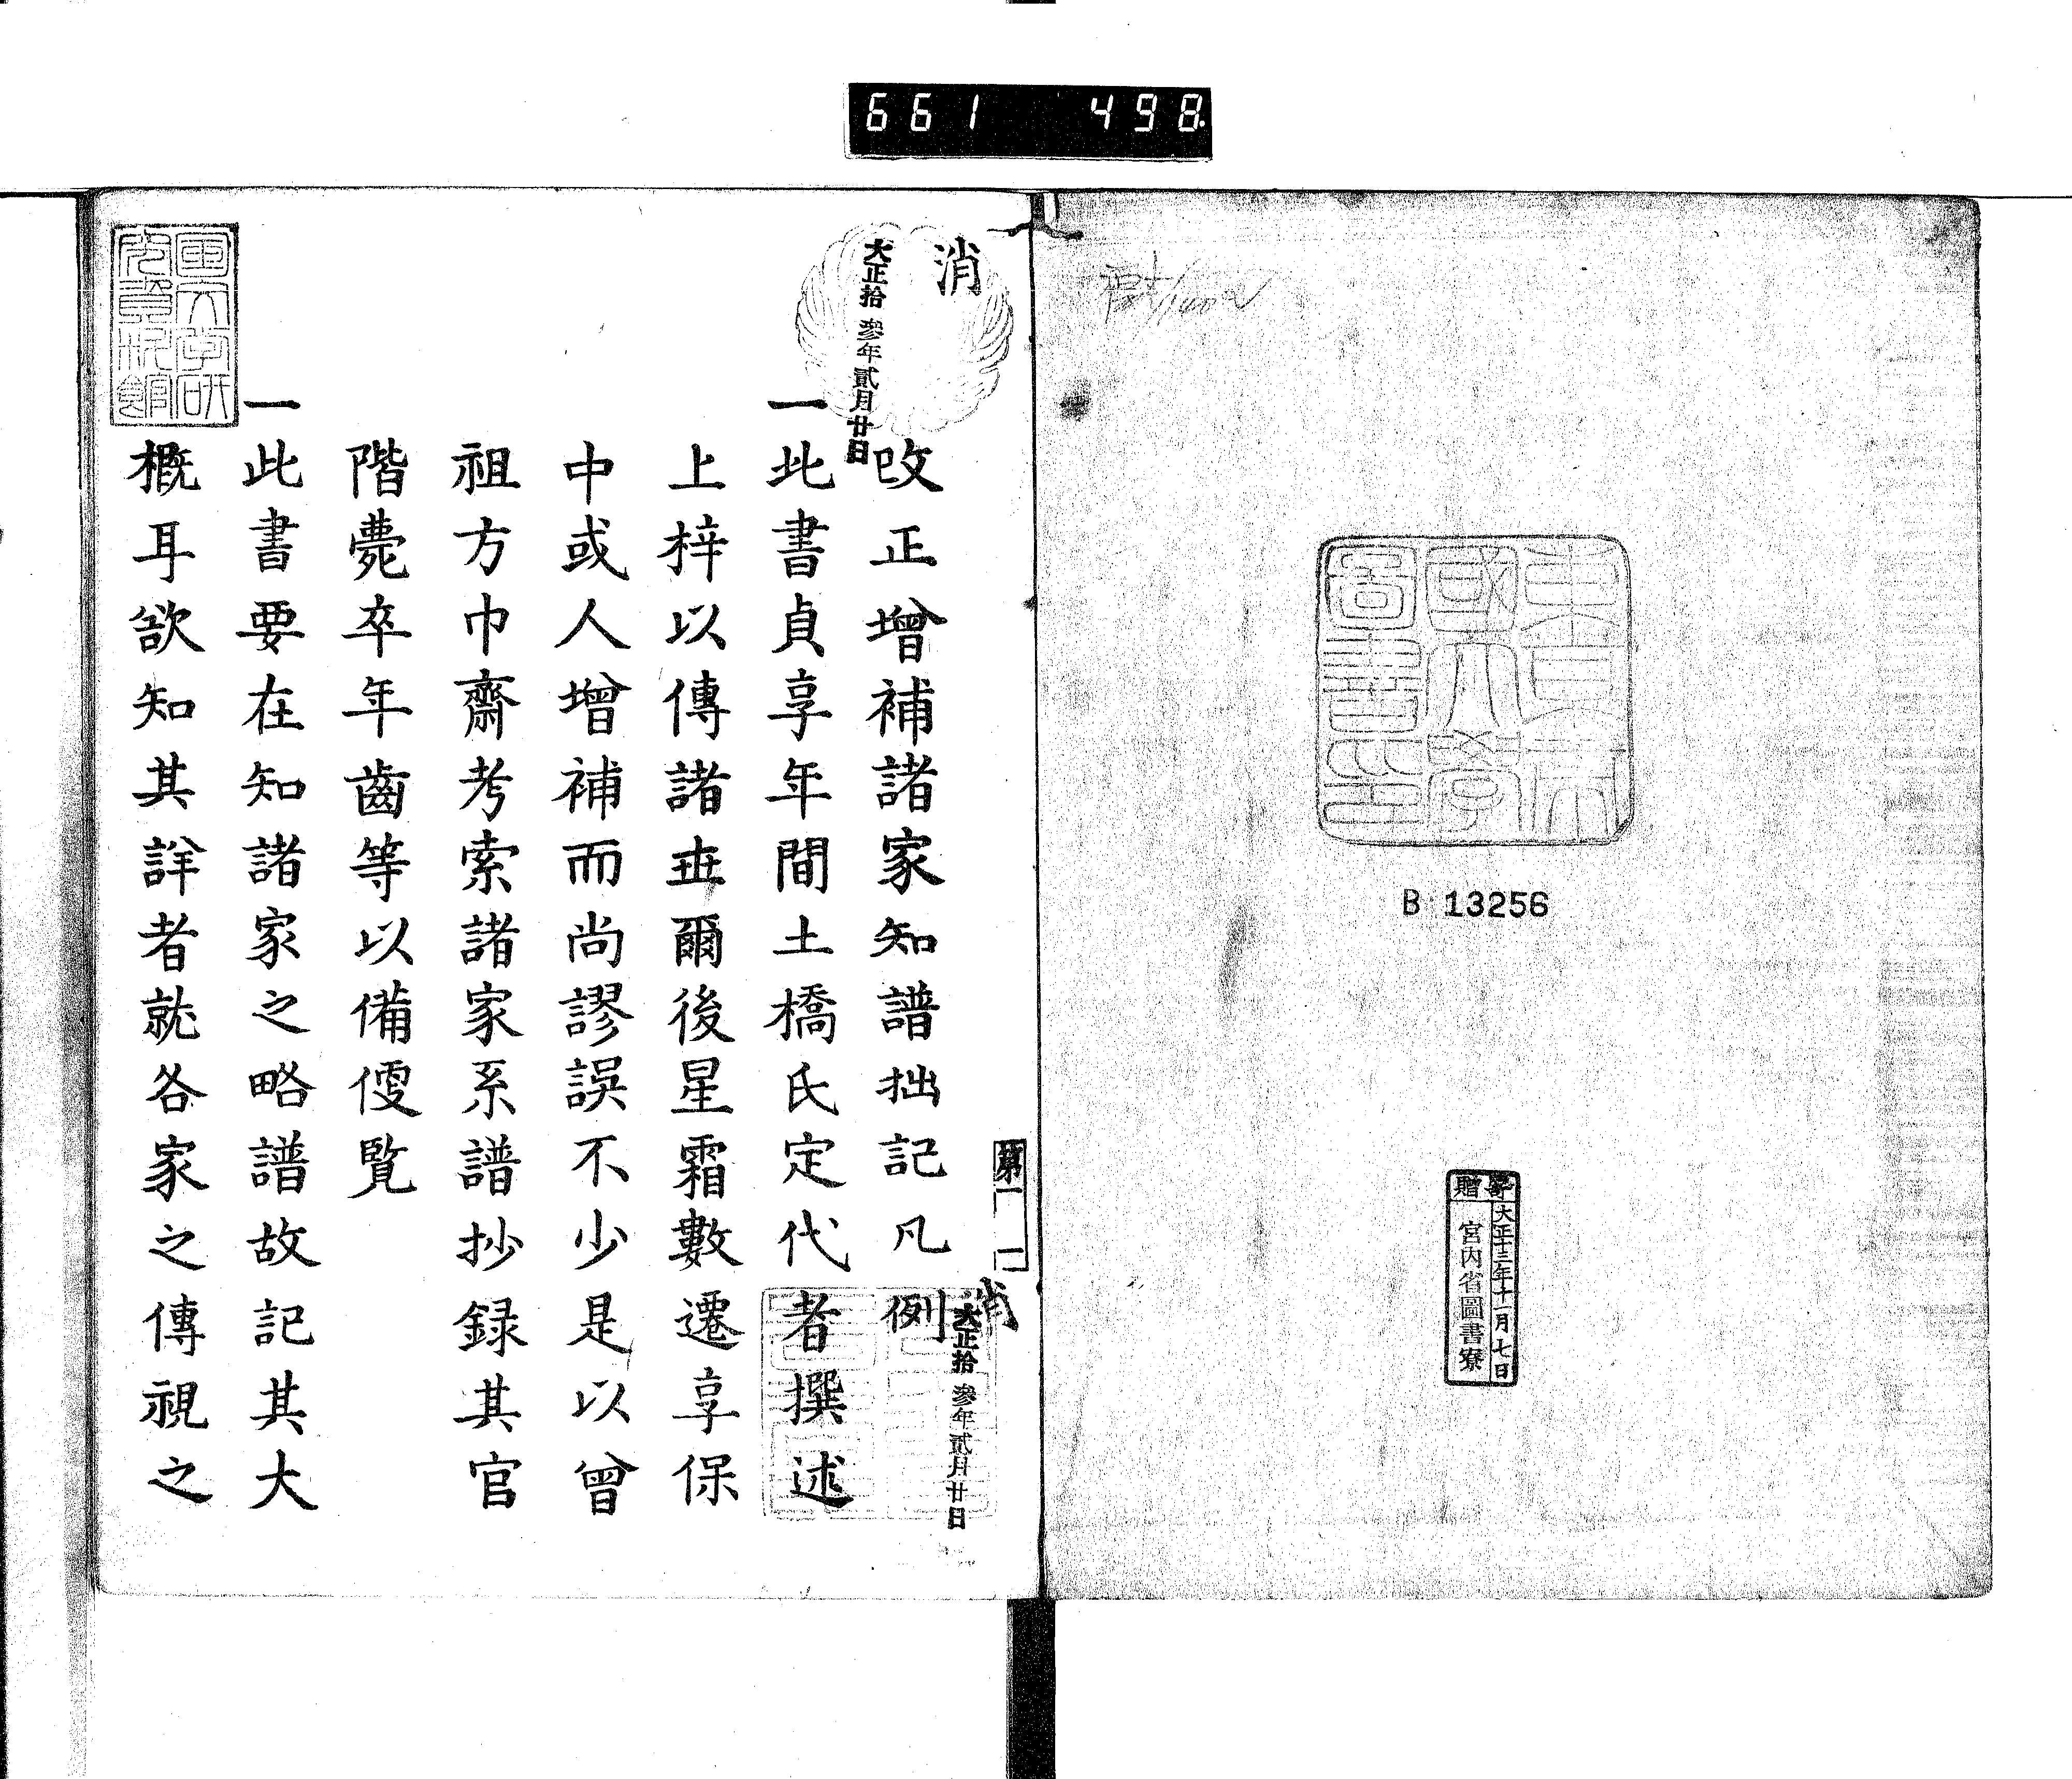 661 498
東京帝
國大學
圖書印
B 13256
寄贈
大正十三年十一月七日
宮内省圖書寮
消
大正拾參年貳月廿日
改正增補諸家知譜拙記凡例
一此書貞享年間土橋氏定代者撰述
上梓以傳諸世爾後星霜數遷享保
中或人增補而尚謬誤不少是以曾
祖方巾齋考索諸家系譜抄録其官
階薨卒年齒等以備便覧
一此書要在知諸家之略譜故記其大
概耳欲知其詳者就各家之傳視之
消
大正拾參年貳月廿日
國文学研
究資料館